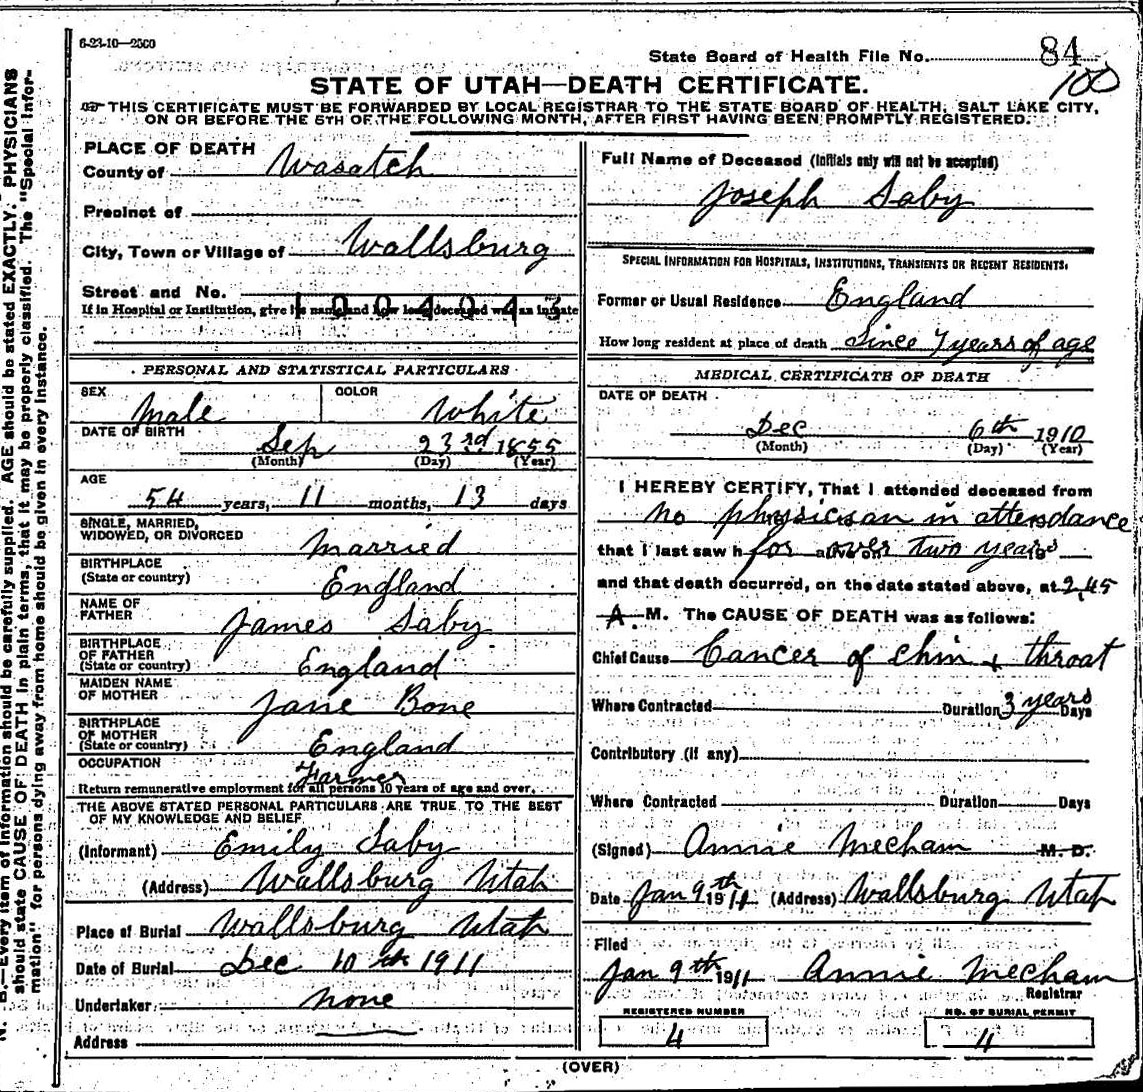 6-23-10—2500
State Board of Health File No. 84
100
STATE OF UTAH—DEATH CERTIFICATE.
THIS CERTIFICATE MUST BE FORWARDED BY LOCAL REGISTRAR TO THE STATE BOARD OF HEALTH, SALT LAKE CITY,
ON OR BEFORE THE 5TH OF THE FOLLOWING MONTH, AFTER FIRST HAVING BEEN PROMPTLY REGISTERED.
PLACE OF DEATH
County of Wasatch
Precinct of
City, Town or Village of Wallsburg
Street and No.
1004043
If in Hospital or Institution, give its name and how long deceased was an inmate
PERSONAL AND STATISTICAL PARTICULARS
SEX Male COLOR White
DATE OF BIRTH Sep 23rd 1855
(Month) (Day) (Year)
AGE
54 years, 11 months, 13 days
SINGLE, MARRIED,
WIDOWED, OR DIVORCED married
BIRTHPLACE
(State or country) England
NAME OF
FATHER James Saby
BIRTHPLACE
OF FATHER
(State or country) England
MAIDEN NAME
OF MOTHER Jane Bone
BIRTHPLACE
OF MOTHER
(State or country) England
OCCUPATION Farmer
Return remunerative employment for all persons 10 years of age and over.
THE ABOVE STATED PERSONAL PARTICULARS ARE TRUE TO THE BEST
OF MY KNOWLEDGE AND BELIEF
(Informant) Emily Saby
(Address) Wallsburg Utah
Place of Burial Wallsburg Utah
Date of Burial Dec 10th 1911
Undertaker none
Address
Full Name of Deceased (Initials only will not be accepted)
Joseph Saby
SPECIAL INFORMATION FOR HOSPITALS, INSTITUTIONS, TRANSIENTS OR RECENT RESIDENTS.
Former or Usual Residence England
How long resident at place of death Since 7 years of age
MEDICAL CERTIFICATE OF DEATH
DATE OF DEATH
Dec 6th 1910
(Month) (Day) (Year)
I HEREBY CERTIFY, That I attended deceased from
no physician in attendance
that I last saw h for alive on over two years
and that death occurred, on the date stated above, at 2,45
A. M. The CAUSE OF DEATH was as follows:
Chief Cause Cancer of chin & throat
Where Contracted Duration 3 years Days
Contributory (if any)
Where Contracted Duration Days
(Signed) Annie Mecham M. D.
Date Jan 9th 1911 (Address) Wallsburg Utah
Filed
Jan 9th 1911 Annie Mecham
Registrar
REGISTERED NUMBER
4
NO. OF BURIAL PERMIT
4
(OVER)
N. B.—Every item of information should be carefully supplied. AGE should be stated EXACTLY. PHYSICIANS
should state CAUSE OF DEATH in plain terms, that it may be properly classified. The "Special Infor-
mation" for persons dying away from home should be given in every instance.